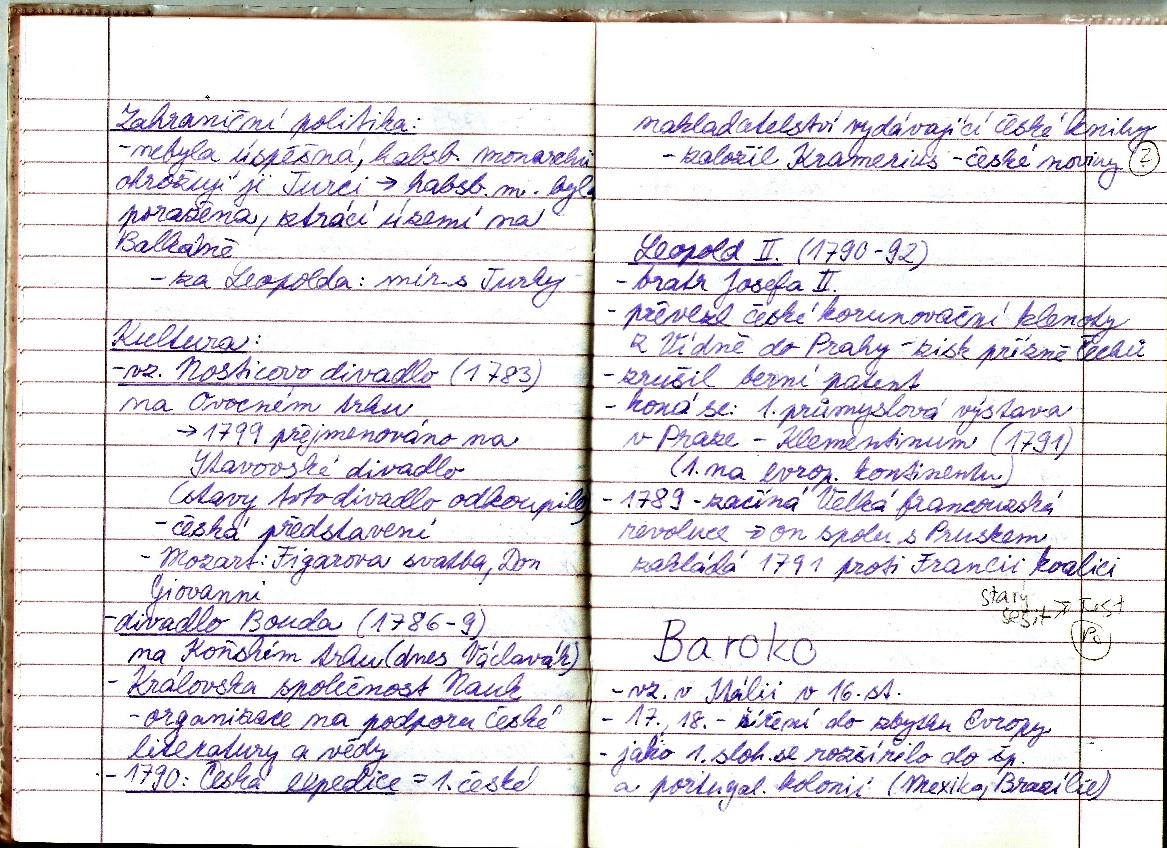 Zahraniční politika:
- nebyla úspěšná, habsb. monarchii
ohrožují ji Turci → habsb. m. byla
poražena, ztrácí území na
Balkáně
- za Leopolda: mír s Turky
Kultura:
- vz. Nosticovo divadlo (1783)
na Ovocném trhu
→ 1799 přejmenováno na
Stavovské divadlo
(stavy toto divadlo odkoupily)
- česká představení
- Mozart: Figarova svatba, Don
Giovanni
- divadlo Bouda (1786-9)
na Koňském trhu (dnes Václavák)
- Královska společnost Nauk
- organizace na podporu české
literatury a vědy
- 1790: Česká expedice = 1. české
nakladatelství vydávající české knihy
- založil Kramerius - české noviny
Leopold II. (1790-92)
- bratr Josefa II.
- převezl české korunovační klenoty
z Vídně do Prahy - zisk přízně Čechů
- zrušil berní patent
- koná se: 1. průmyslová výstava
v Praze - Klementinum (1791)
(1. na evrop. kontinentu)
- 1789 - začíná Velká francouzská
revoluce → on spolu s Pruskem
zakládá 1791 proti Francii koalici
starý
sešit → Test
Baroko
- vz. v Itálii v 16. st.
- 17., 18. - šíření do zbytku Evropy
- jako 1. sloh se rozšířilo do šp.
a portugal. kolonií (Mexiko, Brazílie)